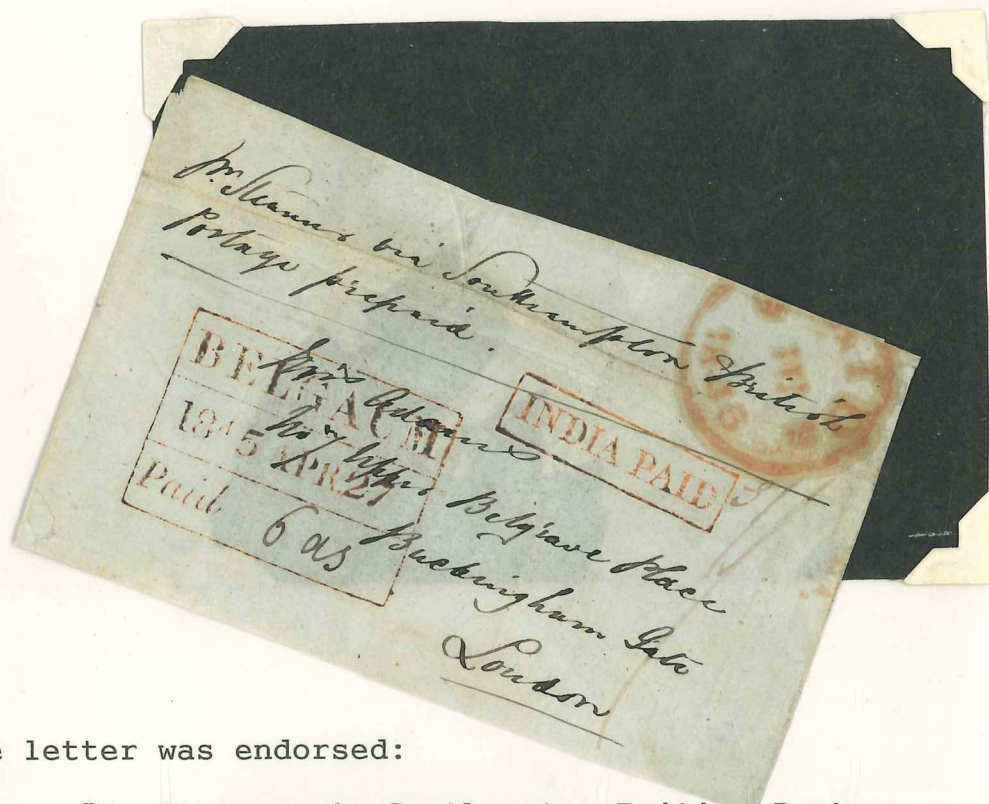 pr. Steamer via Southampton British
Postage prepaid.
BELGAUM
1845 APR 27
Paid 6 as
INDIA PAID
Adams
No 7 Upper Belgrave Place
Buckingham Gate
London
letter was endorsed: